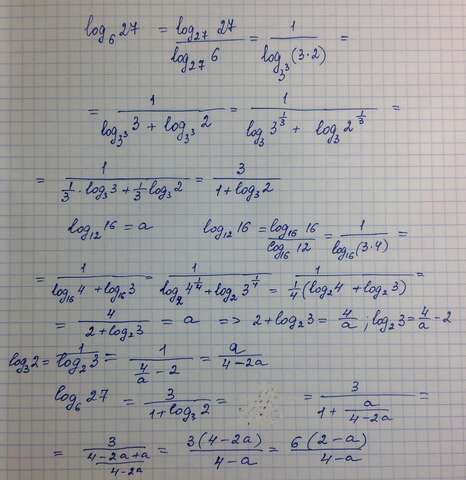 log₆27 = log₂₇27 / log₂₇6 = 1 / log₃³(3·2) =
= 1 / (log₃³3 + log₃³2) = 1 / (log₃3^(1/3) + log₃2^(1/3)) =
= 1 / (1/3·log₃3 + 1/3 log₃2) = 3 / (1+log₃2)
log₁₂16 = a log₁₂16 = log₁₆16 / log₁₆12 = 1 / log₁₆(3·4) =
= 1 / (log₁₆4 + log₁₆3) = 1 / (log₂4^(1/4) + log₂3^(1/4)) = 1 / (1/4(log₂4 + log₂3)) =
= 4 / (2+log₂3) = a => 2+log₂3 = 4/a ; log₂3 = 4/a - 2
log₃2 = 1 / log₂3 = 1 / (4/a - 2) = a / (4-2a)
log₆27 = 3 / (1+log₃2) = = 3 / (1 + a/(4-2a)) =
= 3 / ((4-2a+a)/(4-2a)) = 3(4-2a) / (4-a) = 6(2-a) / (4-a)